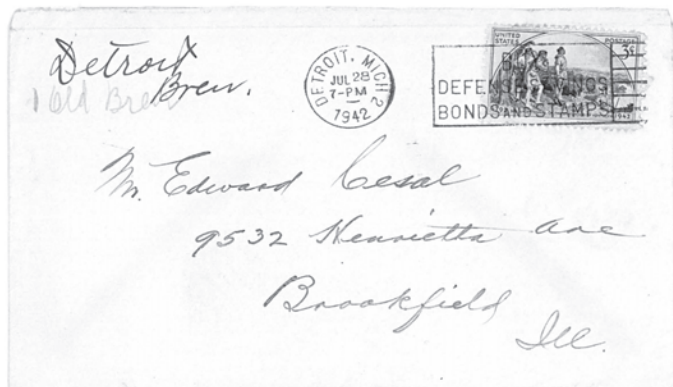 Detroit
Brew.
1 Old Brew
DETROIT, MICH 2
JUL 28
7-PM
1942
BUY
DEFENSE SAVINGS
BONDS AND STAMPS
UNITED STATES
POSTAGE
3¢
Mr. Edward Cesal
9532 Henrietta Ave
Brookfield
Ill.